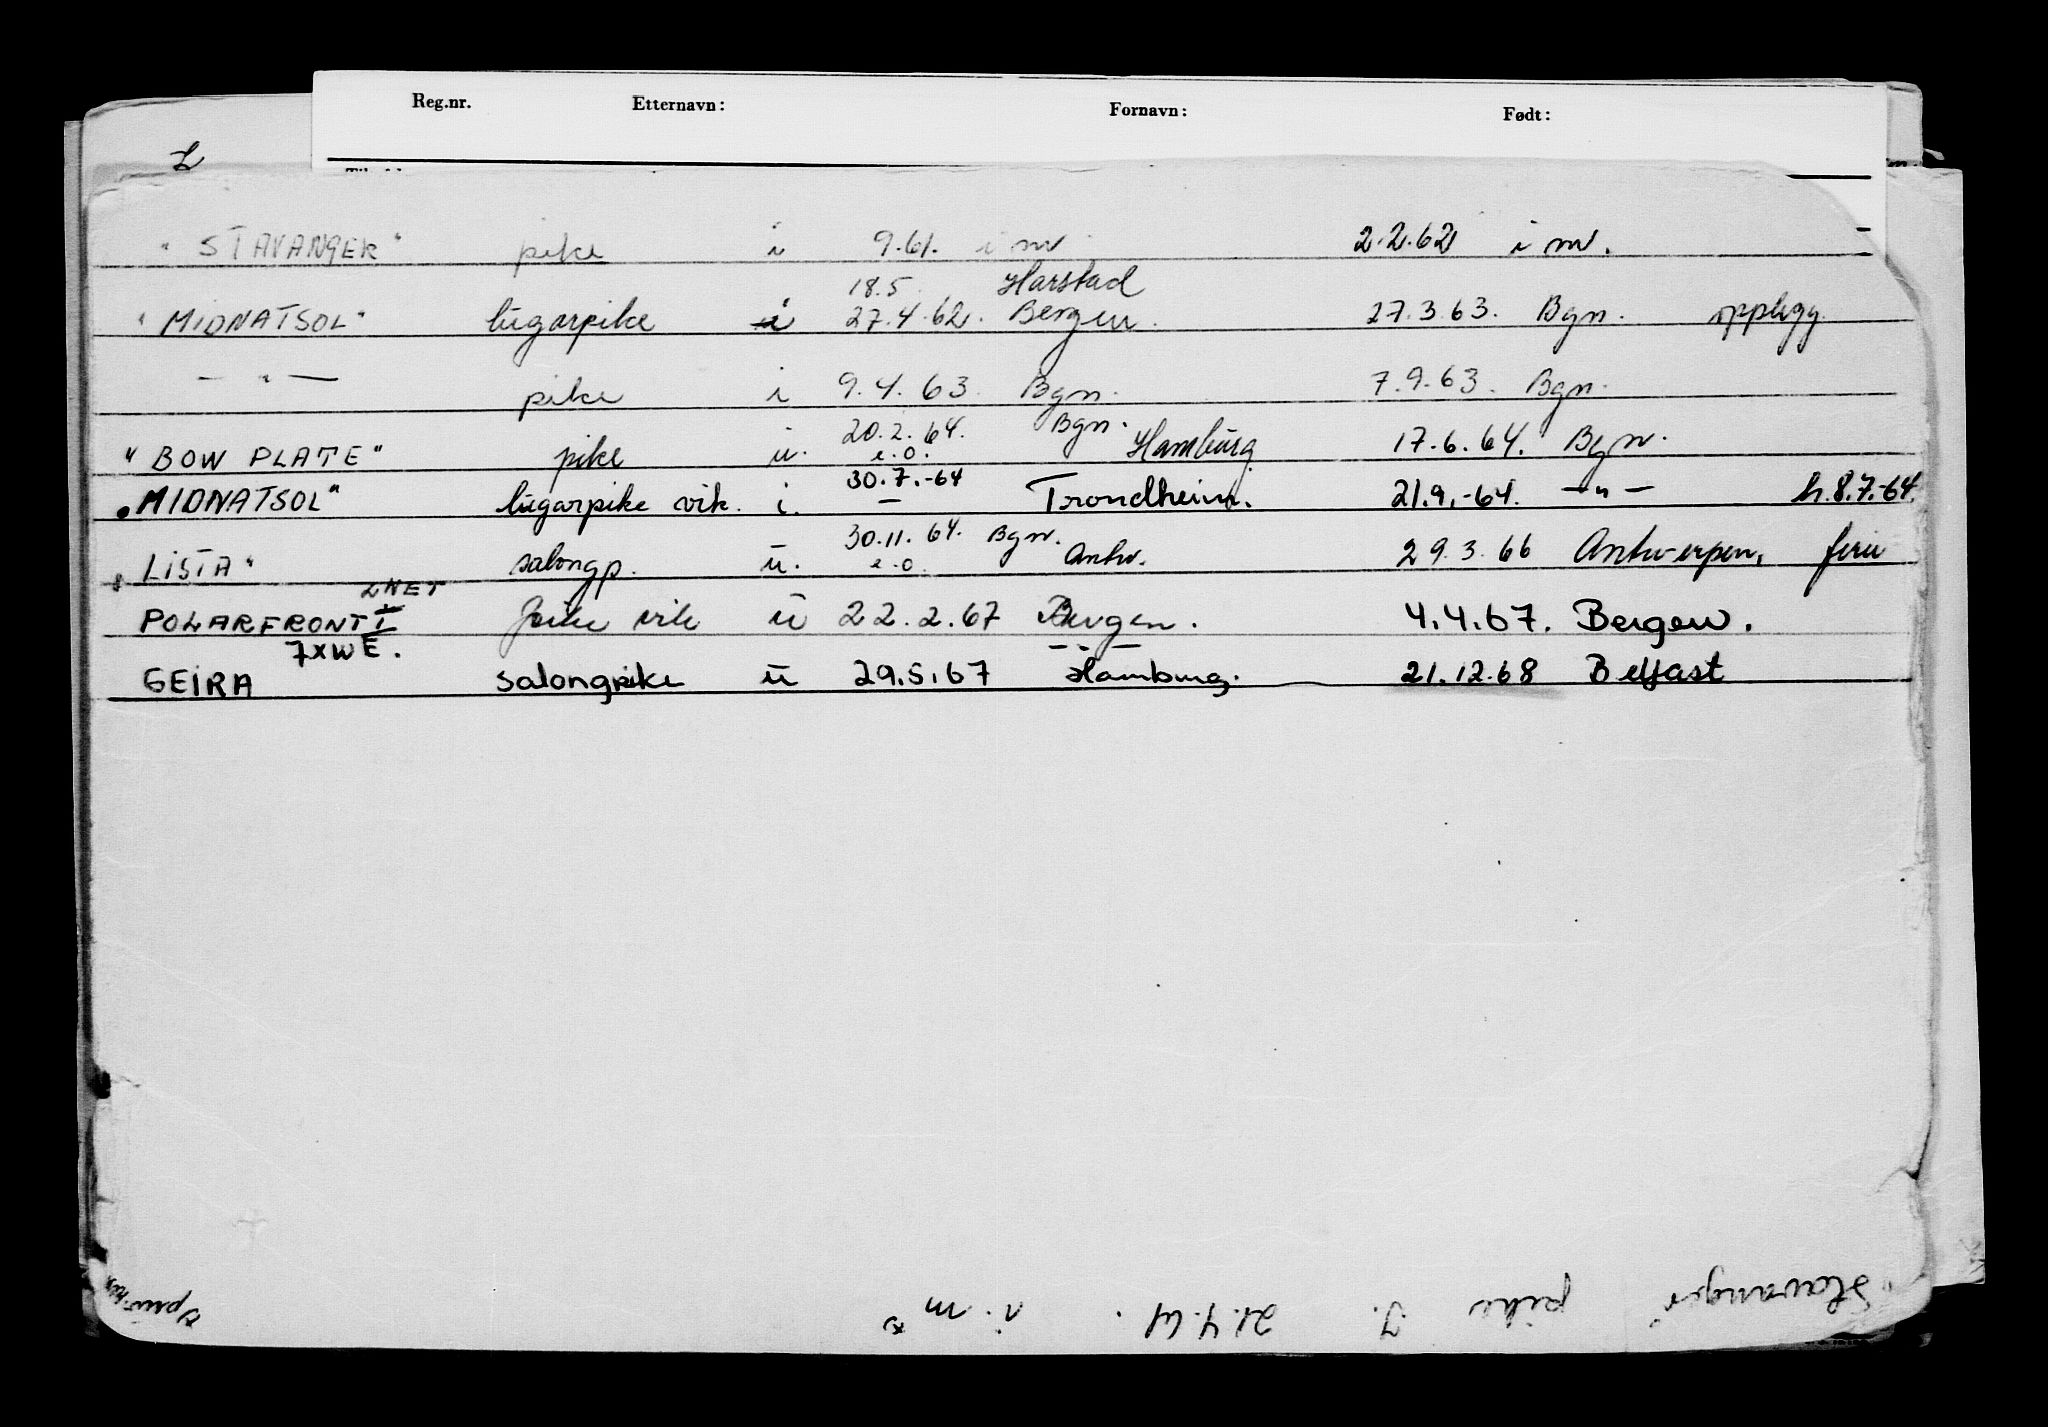 Reg.nr. Etternavn: Fornavn: Født:
"STAVANGER" pike i 9.61. i nv 2.2.62 i nv.
18.5. Harstad
"MIDNATSOL" lugarpike i 27.4.62. Bergen. 27.3.63. Bgn. opplegg.
— " — pike i 9.4.63 Bgn. 7.9.63. Bgn.
20.2.64. Bgn.
"BOW PLATE" pike u. e.o. Hamburg 17.6.64. Bgn.
30.7.-64
"MIDNATSOL" lugarpike vik. i. — Trondheim. 21.9.-64. — " — h.8.7.-64.
30.11.64. Bgn.
"LISTA" salongp. u. e.o. Antw. 29.3.66 Antwerpen, ferie
LNET
POLARFRONT I pike vik u 22.2.67 Bergen. 4.4.67. Bergen.
7XWE.
GEIRA salongpike u 29.5.67 Hamburg. 21.12.68 Belfast
"Stavanger" pike i. 21.4.61. i. m